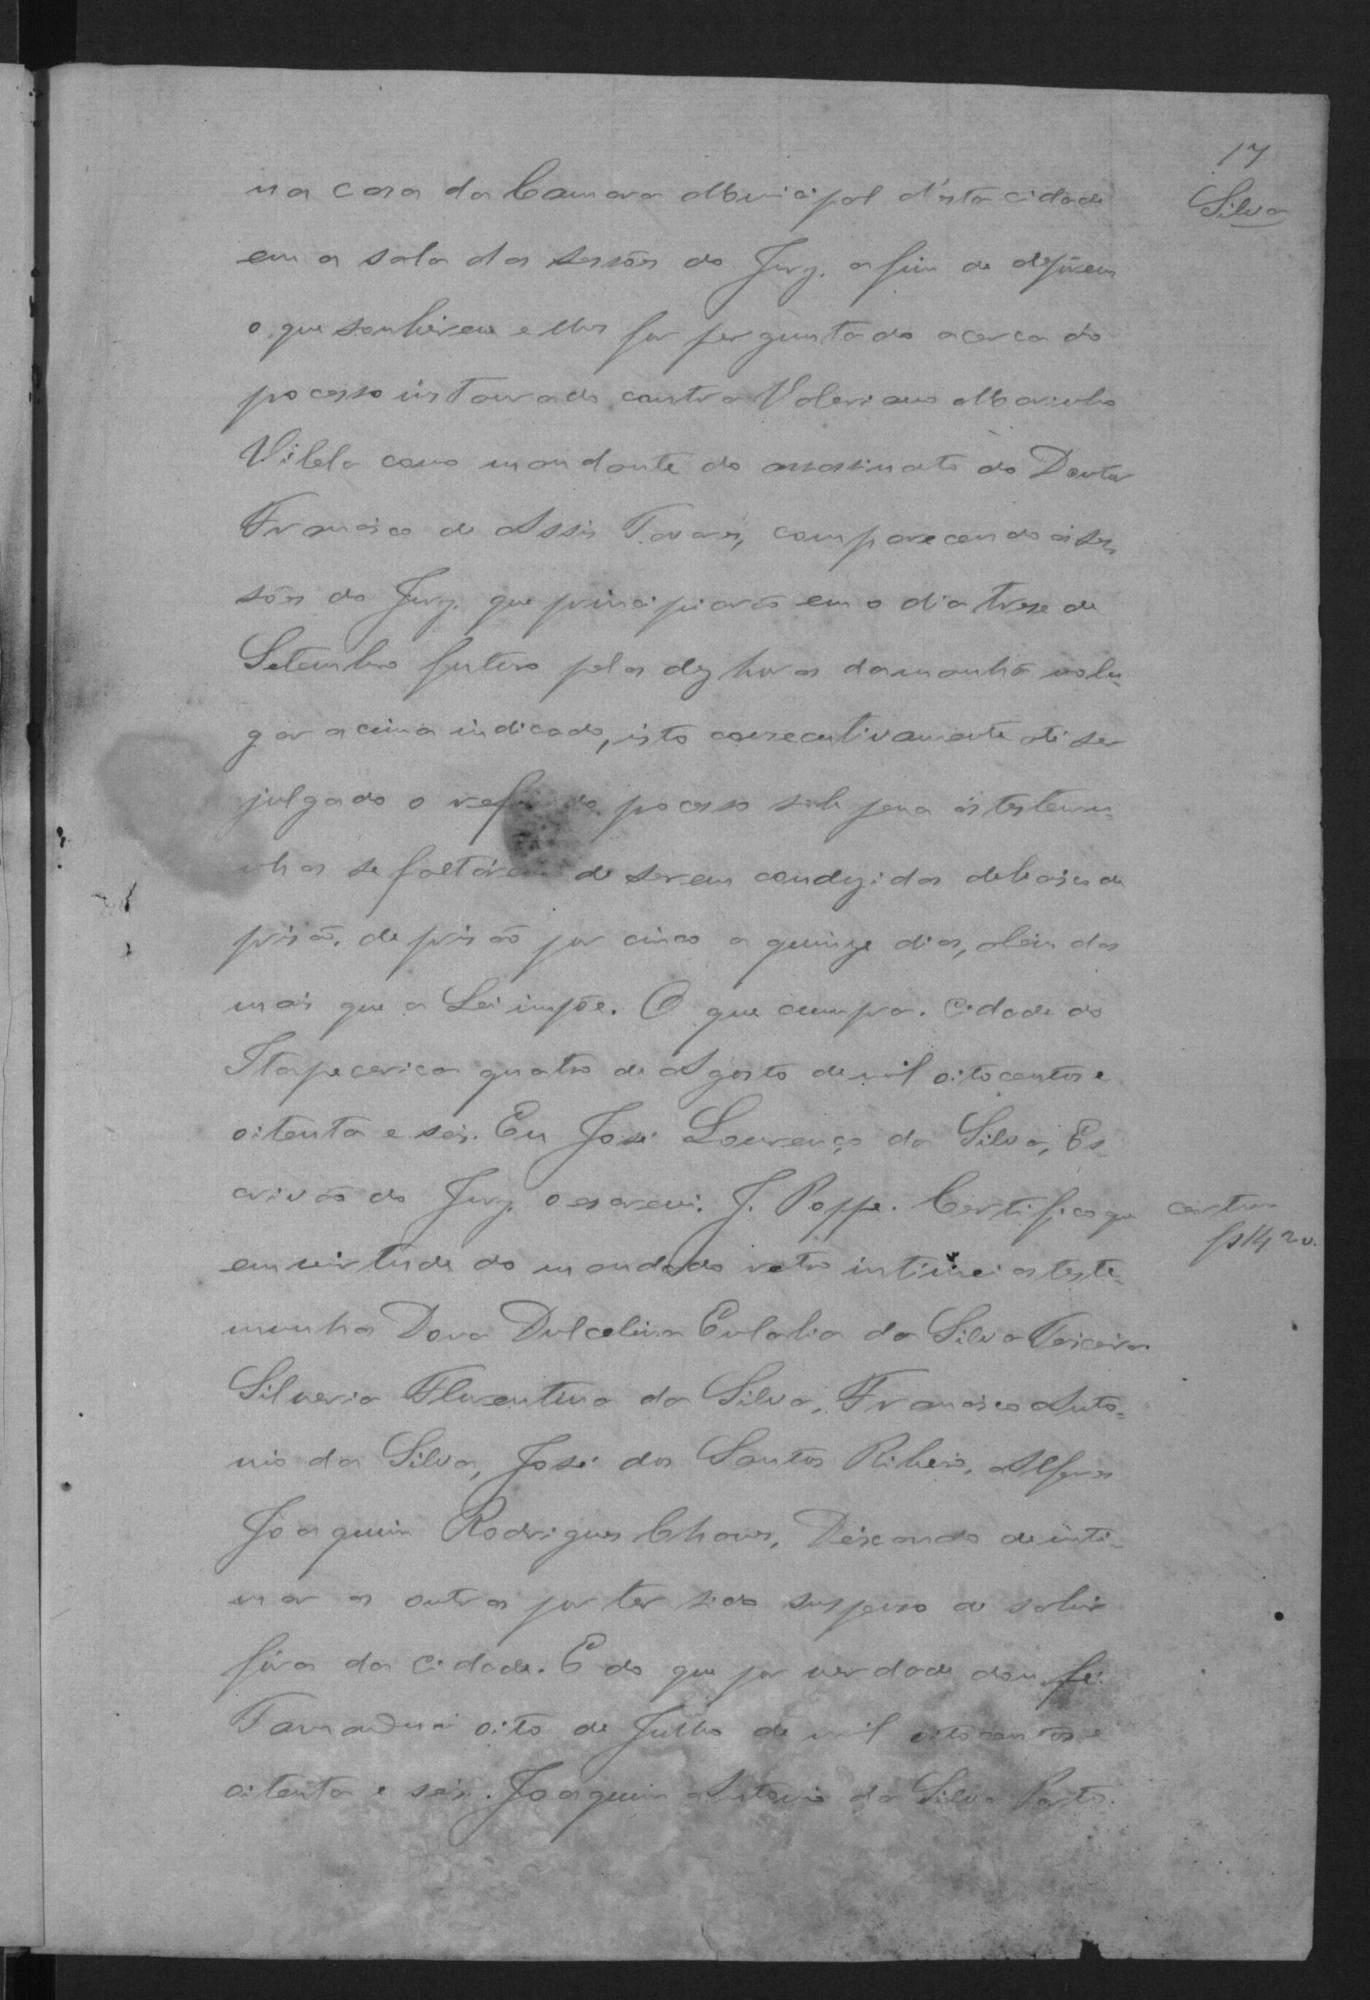 17
Silva
na casa da Camara Municipal d'esta cidade
em a sala das sessões do Jury, afim de depôrem
o que souberem e lhes for perguntado acerca do
pocesso instaurado contra Valeriano Marinho
Vilela como mandante do assassinato do Doutor
Francisco de Assis Tavares, comparecendo ás ses
sões do Jury que principiarão em o dia trese de
Setembro futuro pelas dez horas da manhã no lu-
gar acima indicado, isto consecutivamente até ser
julgado o pocesso sob pena ás testemu-
nhas se faltárem de serem conduzidas debaixo de
prisão, de prisão por cinco a quinze dias, alem das
mais que a Lei impõe. O que cumpra. Cidade do
Itapecerica quatro de Agosto de mil oitocentos e
oitenta e seis. Eu José Lourenço da Silva, Es
crivão do Jury o escrevi. J. Poppe. Certifico que
em virtude do mandado retro intimei as teste-
munhas Dona Dulcelina Eulalia da Silva Teixeira
Silveria Florentina da Silva, Francisco Anto-
nio da Silva, José dos Santos Ribeiro, Alferes
Joaquim Rodrigues Chaves, Deixando de inti-
mar as outras por ter sido suspenso de sahir
fóra da cidade. E do que por verdade dou fé.
Tamanduá oito de Julho de mil oitocentos e
oitenta e seis. Joaquim Antonio da Silva Porto.